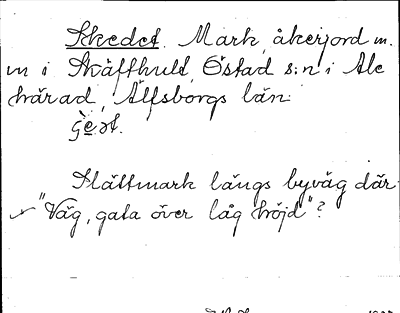 Skedet. Mark, åkerjord m.
m i Skäfthult, Östad s:n i Ale
härad, Älfsborgs län.
Slättmark längs byväg där
"Väg, gata över låg höjd"?